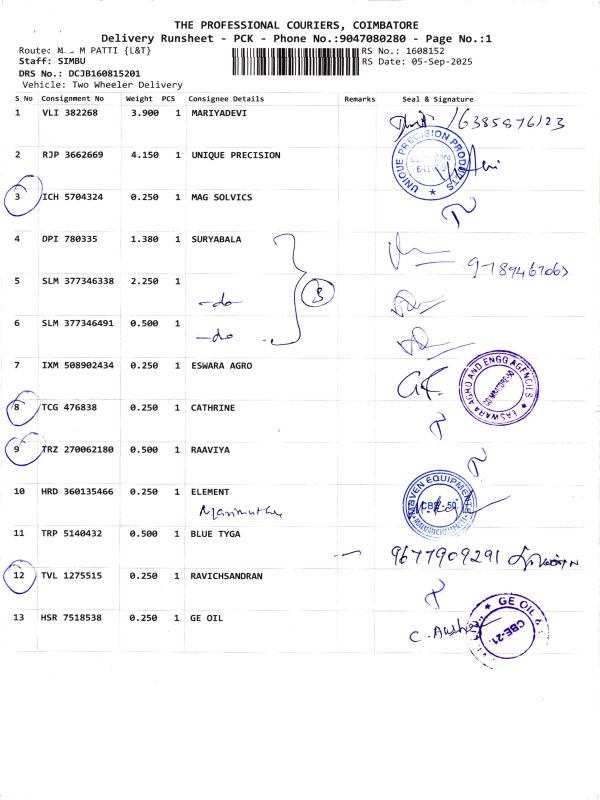 THE PROFESSIONAL COURIERS, COIMBATORE
Delivery Runsheet - PCK - Phone No.:9047080280 - Page No.:1
Route: M PATTI {L&T} RS No.: 1608152
Staff: SIMBU RS Date: 05-Sep-2025
DRS No.: DCJB160815201
Vehicle: Two Wheeler Delivery
S No Consignment No Weight PCS Consignee Details Remarks Seal & Signature
1 VLI 382268 3.900 1 MARIYADEVI 6385876123
2 RJP 3662669 4.150 1 UNIQUE PRECISION UNIQUE PRECISION PRODUCTS
3 ICH 5704324 0.250 1 MAG SOLVICS
4 DPI 780335 1.380 1 SURYABALA 9789467067
5 SLM 377346338 2.250 1
-do- 3
6 SLM 377346491 0.500 1
-do-
7 IXM 508902434 0.250 1 ESWARA AGRO EASWARA AGRO AND ENGG AGENCIES COIMBATORE-50
8 TCG 476838 0.250 1 CATHRINE
9 TRZ 270062180 0.500 1 RAAVIYA
10 HRD 360135466 0.250 1 ELEMENT EQUIPMENTS CBE-50
Marimuthu
11 TRP 5140432 0.500 1 BLUE TYGA
9677909291
12 TVL 1275515 0.250 1 RAVICHSANDRAN
13 HSR 7518538 0.250 1 GE OIL GE OIL & CBE-21